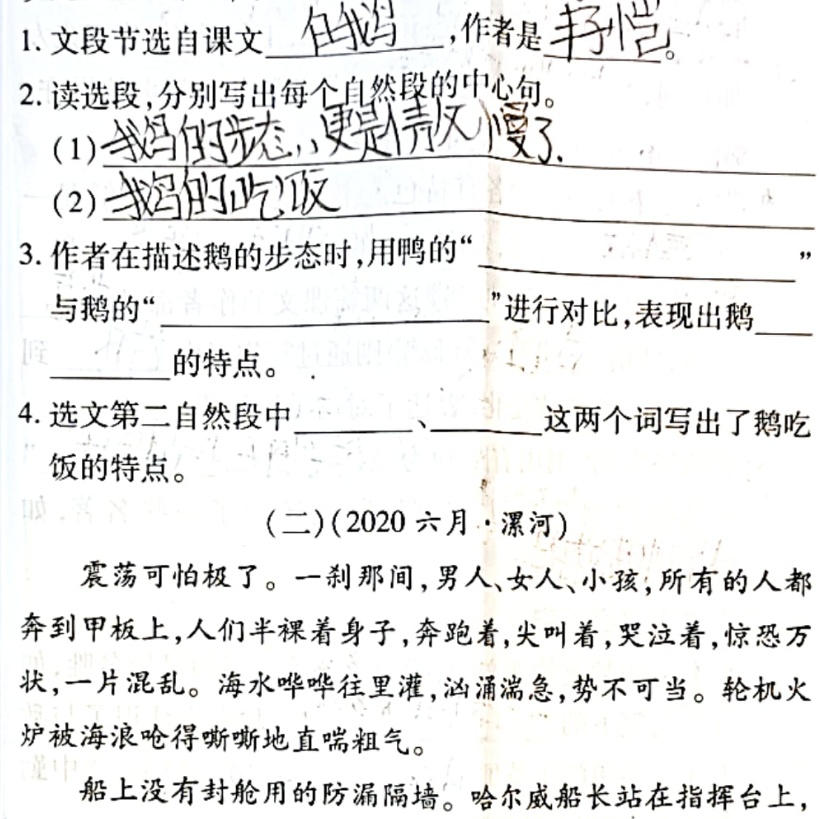 1.文段节选自课文 白鹅 ,作者是 丰子恺 。
2.读选段,分别写出每个自然段的中心句。
(1)鹅的步态,更是傲慢了.
(2)鹅的吃饭
3.作者在描述鹅的步态时,用鸭的“________”
与鹅的“________”进行对比,表现出鹅__
____的特点。
4.选文第二自然段中____、____这两个词写出了鹅吃
饭的特点。
(二)(2020六月·漯河)
震荡可怕极了。一刹那间,男人、女人、小孩,所有的人都
奔到甲板上,人们半裸着身子,奔跑着,尖叫着,哭泣着,惊恐万
状,一片混乱。海水哗哗往里灌,汹涌湍急,势不可当。轮机火
炉被海浪呛得嘶嘶地直喘粗气。
船上没有封舱用的防漏隔墙。哈尔威船长站在指挥台上,